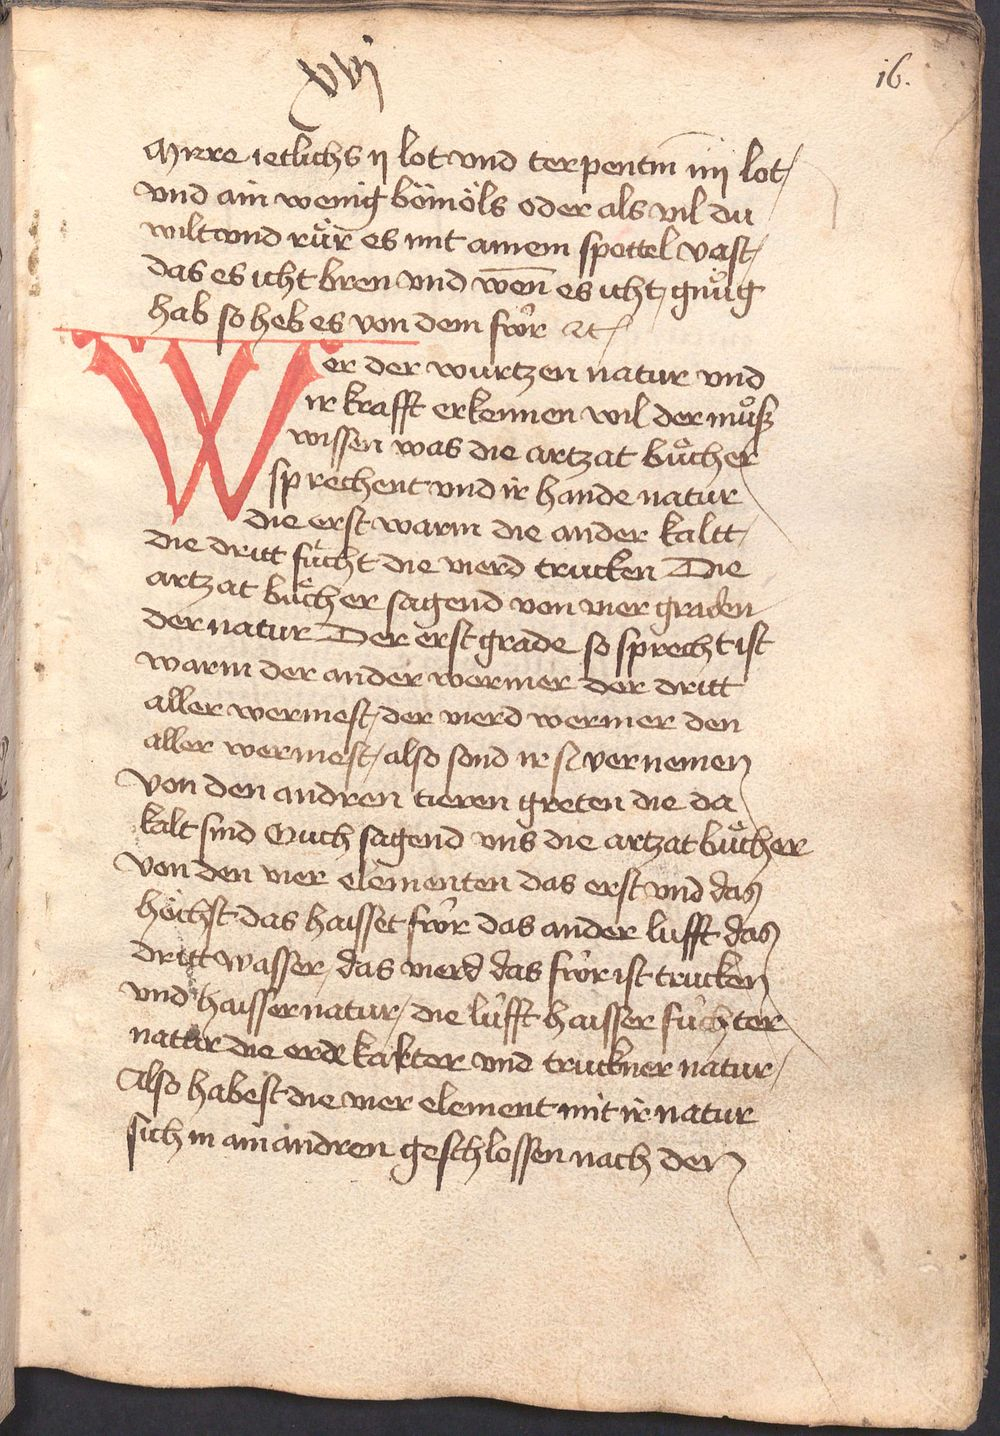 xvj
16.
Mirre ietlichs ij lot vnd terpentin iiij lot /
vnd ain wenig bömöls oder als vil du
wilt vnd rür es mit ainem spettel vast /
das es icht bren vnd wen̄ es icht / gnůg
hab so heb es von dem fwr ⁊c
Wer der wurtzen natur vnd
ir krafft erkennen wil der můß
wissen was die artzat bůcher
sprechent vnd ir hande natur
die erst warm die ander kaltt /
die dritt fücht die vierd trucken Die
artzat bůcher sagend von vier graden
der natur Der erst grade so sprecht ist
warm der ander wermer der dritt
aller wermest / der vierd wermer den
aller wermest / also sond ir vernemen
von den andren greten die da
kalt sind Ouch sagend vns die artzat bůcher
von den vier elementen das erst vnd das
höchst das haisset fwr das ander lufft das
dritt wasser / das vierd das fwr ist trucken
vnd haisser natur / die lufft haisser füchter
natur die erde kalter vnd truckner natur /
Also habest die vier element mit ir natur
sich in ain andren geschlossen nach den